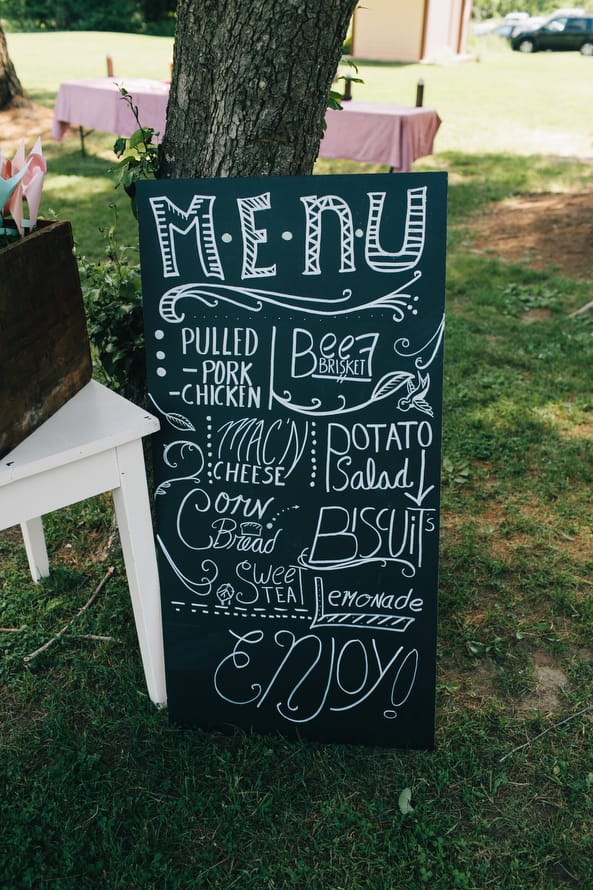 MENU
PULLED
-PORK
-CHICKEN
Beef
BRISKET
MAC'N
CHEESE
POTATO
Salad
CORN
Bread
BISCUITS
SWEET
TEA
Lemonade
ENJOY!